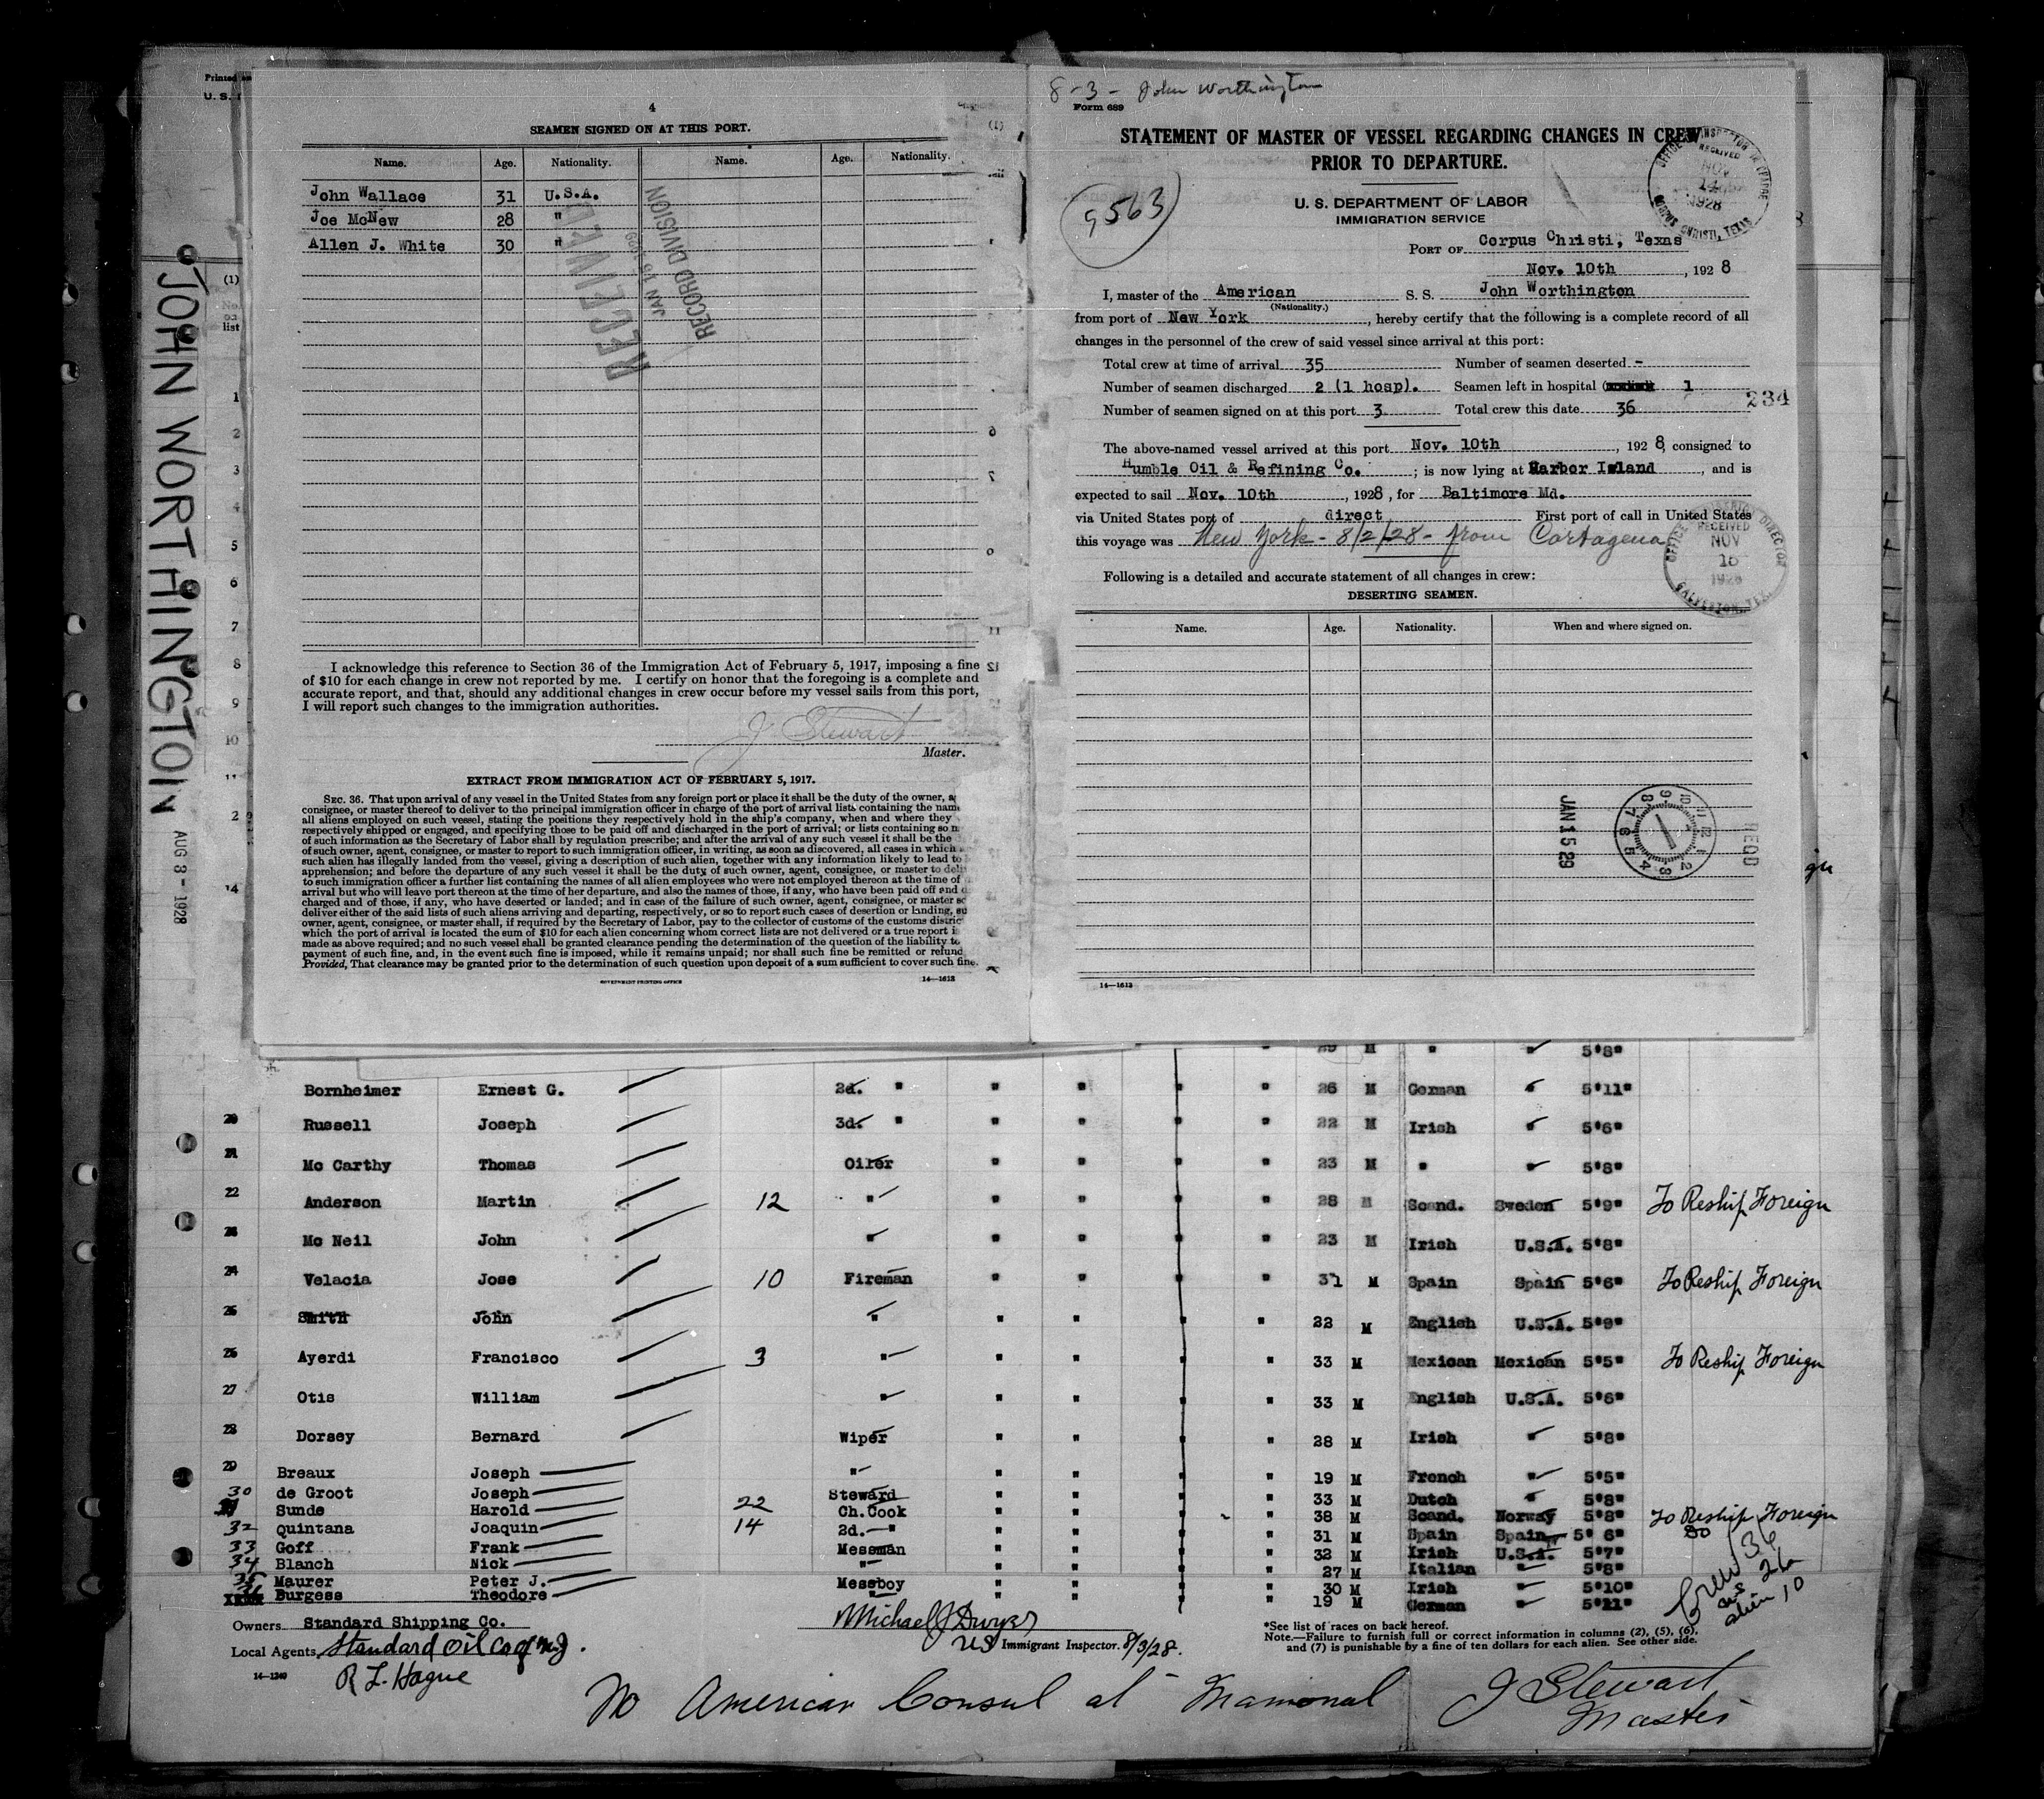 JOHN WORTHINGTON
AUG 8 - 1928
Printed
U. S.
4
SEAMEN SIGNED ON AT THIS PORT.
Name. Age. Nationality. Name. Age. Nationality.
John Wallace 31 U.S.A.
Joe McNew 28 "
Allen J. White 30 "
RECEIVED
RECORD DIVISION
I acknowledge this reference to Section 36 of the Immigration Act of February 5, 1917, imposing a fine
of $10 for each change in crew not reported by me. I certify on honor that the foregoing is a complete and
accurate report, and that, should any additional changes in crew occur before my vessel sails from this port,
I will report such changes to the immigration authorities.
J Stewart
Master.
EXTRACT FROM IMMIGRATION ACT OF FEBRUARY 5, 1917.
SEC. 36. That upon arrival of any vessel in the United States from any foreign port or place it shall be the duty of the owner,
consignee, or master thereof to deliver to the principal immigration officer in charge of the port of arrival lists containing the
all aliens employed on such vessel, stating the positions they respectively hold in the ship's company, when and where they
respectively shipped or engaged, and specifying those to be paid off and discharged in the port of arrival; or lists containing so
of such information as the Secretary of Labor shall by regulation prescribe; and after the arrival of any such vessel it shall be the
of such owner, agent, consignee, or master to report to such immigration officer, in writing, as soon as discovered, all cases in which
such alien has illegally landed from the vessel, giving a description of such alien, together with any information likely to lead to
apprehension; and before the departure of any such vessel it shall be the duty of such owner, agent, consignee, or master to
to such immigration officer a further list containing the names of all alien employees who were not employed thereon at the time of
arrival but who will leave port thereon at the time of her departure, and also the names of those, if any, who have been paid off and
charged and of those, if any, who have deserted or landed; and in case of the failure of such owner, agent, consignee, or master
deliver either of the said lists of such aliens arriving and departing, respectively, or so to report such cases of desertion or landing,
owner, agent, consignee, or master shall, if required by the Secretary of Labor, pay to the collector of customs of the customs
which the port of arrival is located the sum of $10 for each alien concerning whom correct lists are not delivered or a true report
made as above required; and no such vessel shall be granted clearance pending the determination of the question of the liability to
payment of such fine, and, in the event such fine is imposed, while it remains unpaid; nor shall such fine be remitted or
Provided, That clearance may be granted prior to the determination of such question upon deposit of a sum sufficient to cover such fine.
GOVERNMENT PRINTING OFFICE 14—1613
8-3- John Worthington
Form 689
STATEMENT OF MASTER OF VESSEL REGARDING CHANGES IN CREW
PRIOR TO DEPARTURE.
9563
U. S. DEPARTMENT OF LABOR
IMMIGRATION SERVICE
RECEIVED NOV 14 1928 CORPUS CHRISTI, TEXAS
PORT OF Corpus Christi, Texas
Nov. 10th, 1928
I, master of the American S. S. John Worthington
(Nationality.)
from port of New York, hereby certify that the following is a complete record of all
changes in the personnel of the crew of said vessel since arrival at this port:
Total crew at time of arrival 35 Number of seamen deserted -
Number of seamen discharged 2 (1 hosp). Seamen left in hospital 1
Number of seamen signed on at this port 3 Total crew this date 36
234
The above-named vessel arrived at this port Nov. 10th, 1928, consigned to
Humble Oil & Refining Co.; is now lying at Harbor Island, and is
expected to sail Nov. 10th, 1928, for Baltimore Md.
via United States port of direct First port of call in United States
this voyage was New York - 8/2/28 - from Cartagena
RECEIVED NOV 1928 GALVESTON, TEX.
Following is a detailed and accurate statement of all changes in crew:
DESERTING SEAMEN.
Name. Age. Nationality. When and where signed on.
JAN 15 29
14—1613
29 M " 5'8"
Bornheimer Ernest G. 2d. " " " " " 26 M German " 5'11"
20 Russell Joseph 3d. " " " " " 22 M Irish " 5'6"
21 Mc Carthy Thomas Oiler " " " " 23 M " " 5'8"
22 Anderson Martin 12 " " " " " 28 M Scand. Sweden 5'9" To Reship Foreign
23 Mc Neil John " " " " " 23 M Irish U.S.A. 5'8"
24 Velacia Jose 10 Fireman " " " " 31 M Spain Spain 5'6" To Reship Foreign
25 Smith John " " " " " 22 M English U.S.A. 5'9"
26 Ayerdi Francisco 3 " " " " " 33 M Mexican Mexican 5'5" To Reship Foreign
27 Otis William " " " " " 33 M English U.S.A. 5'6"
28 Dorsey Bernard Wiper " " " " 28 M Irish " 5'8"
29 Breaux Joseph " " " " " 19 M French " 5'5"
30 de Groot Joseph Steward " " " " 33 M Dutch " 5'8"
31 Sunde Harold 22 Ch.Cook " " " " 38 M Scand. Norway 5'8" To Reship Foreign
32 Quintana Joaquin 14 2d. " " " " " 31 M Spain Spain 5' 6" Do
33 Goff Frank Messman " " " " 32 M Irish U.S.A. 5'7"
34 Blanch Nick " " " " " 27 M Italian " 5'8"
35 Maurer Peter J. Messboy " " " " 30 M Irish " 5'10"
36 Burgess Theodore " " " " " 19 M German " 5'11"
Crew 36
US 26
alien 10
Owners Standard Shipping Co.
Local Agents Standard Oil Co of N.J.
R L. Hague
14—1240
Michael J Dwyer
US Immigrant Inspector. 8/3/28.
*See list of races on back hereof.
Note.—Failure to furnish full or correct information in columns (2), (5), (6),
and (7) is punishable by a fine of ten dollars for each alien. See other side.
No American Consul at Mamonal
J Stewart
Master